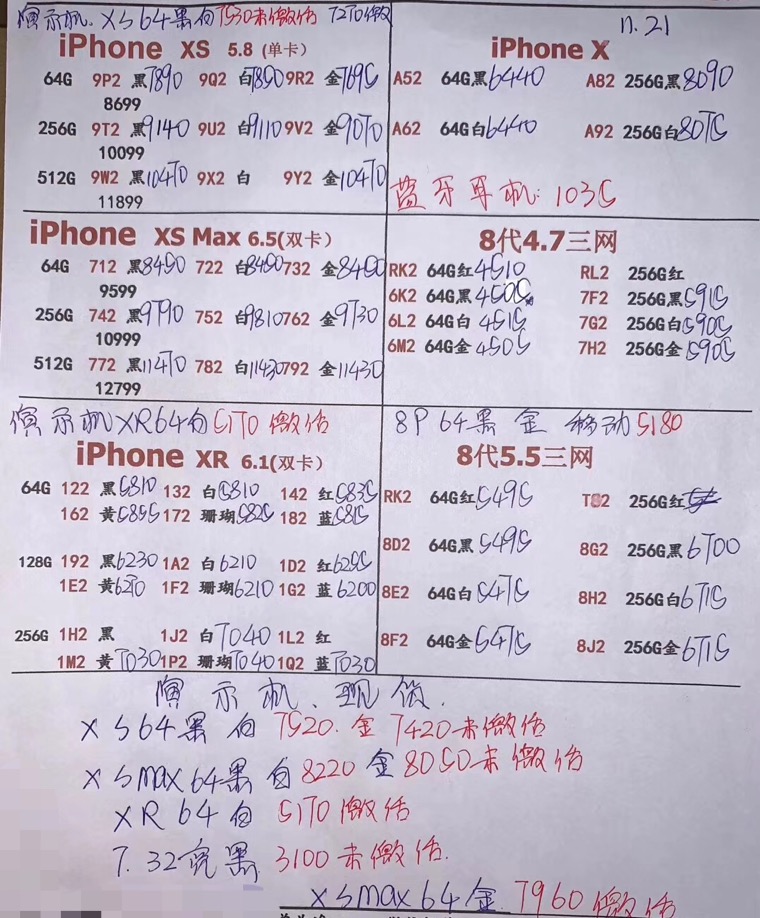 演示机. XS 64黑白7530未激活 7270激
iPhone XS 5.8 (单卡)
64G 9P2 黑7890 9Q2 白7850 9R2 金7695
8699
256G 9T2 黑9140 9U2 白9110 9V2 金9070
10099
512G 9W2 黑10470 9X2 白 9Y2 金10470
11899
11.21
iPhone X
A52 64G黑6440 A82 256G黑8090
A62 64G白6440 A92 256G白8075
蓝牙耳机: 1035
iPhone XS Max 6.5(双卡)
64G 712 黑8450 722 白8450 732 金8450
9599
256G 742 黑9790 752 白9810 762 金9730
10999
512G 772 黑11470 782 白11430 792 金11430
12799
8代4.7三网
RK2 64G红4510 RL2 256G红
6K2 64G黑4505 7F2 256G黑5915
6L2 64G白4515 7G2 256G白5905
6M2 64G金4505 7H2 256G金5905
演示机XR64白5170激活
iPhone XR 6.1(双卡)
64G 122 黑5810 132 白5810 142 红5835
162 黄5855 172 珊瑚5825 182 蓝5815
128G 192 黑6230 1A2 白6210 1D2 红6255
1E2 黄6270 1F2 珊瑚6210 1G2 蓝6200
256G 1H2 黑 1J2 白7040 1L2 红
1M2 黄7030 1P2 珊瑚7040 1Q2 蓝7030
8P 64黑 金 移动5180
8代5.5三网
RK2 64G红5495 T82 256G红
8D2 64G黑5495 8G2 256G黑6700
8E2 64G白5475 8H2 256G白6715
8F2 64G金5475 8J2 256G金6715
演示机、现货.
XS64黑白7520. 金7420未激活
XSmax64黑白8220金8050未激活
XR64白 5170激活
7.32亮黑 3100未激活.
XSmax64金 7960激活